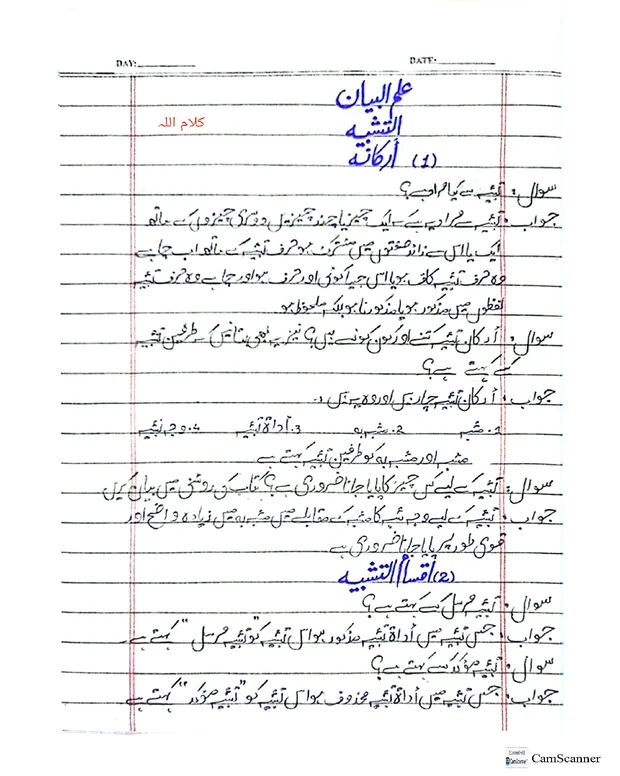 DAY: DATE:
علم البیان
کلام اللہ
التشبیہ
(1) أرکانہ
سوال: تشبیہ سے کیا مراد ہے؟
جواب: تشبیہ سے مراد یہ ہے کہ ایک چیز یا چند چیزیں دوسری چیزوں کے ساتھ
ایک یا اس سے زائد صفتوں میں مشترک ہو حرف تشبیہ کے ساتھ اب چاہے
وہ حرف تشبیہ کاف ہو یا اس جیسا کوئی اور حرف ہو اور چاہے وہ حرف تشبیہ
لفظوں میں مذکور ہو یا مذکور نا ہو بلکہ ملحوظ ہو
سوال: أرکان تشبیہ کتنے اور کون کونسے ہیں؟ نیز یہ بھی بتائیں کہ طرفین تشبیہ
کسے کہتے ہے؟
جواب: أرکان تشبیہ چار ہیں اور وہ یہ ہیں :-
1. مشبہ 2. مشبہ بہ 3. أداۃ تشبیہ 4. وجہ تشبیہ
مشبہ اور مشبہ بہ کو طرفین تشبیہ کہتے ہے
سوال: تشبیہ کے لیے کس چیز کا پایا جانا ضروری ہے؟ کتاب کی روشنی میں بیان کریں
جواب: تشبیہ کے لیے وجہ شبہ کا مشبہ کے مقابلے میں مشبہ بہ میں زیادہ واضح اور
قوی طور پر پایا جانا ضروری ہے
(2) أقسام التشبیہ
سوال: تشبیہ مرسل کسے کہتے ہے؟
جواب: جس تشبیہ میں أداۃ تشبیہ مذکور ہو اس تشبیہ کو "تشبیہ مرسل" کہتے ہے
سوال: تشبیہ مؤکد کسے کہتے ہے؟
جواب: جس تشبیہ میں أداۃ تشبیہ محذوف ہو اس تشبیہ کو "تشبیہ مؤکد" کہتے ہے
CamScanner